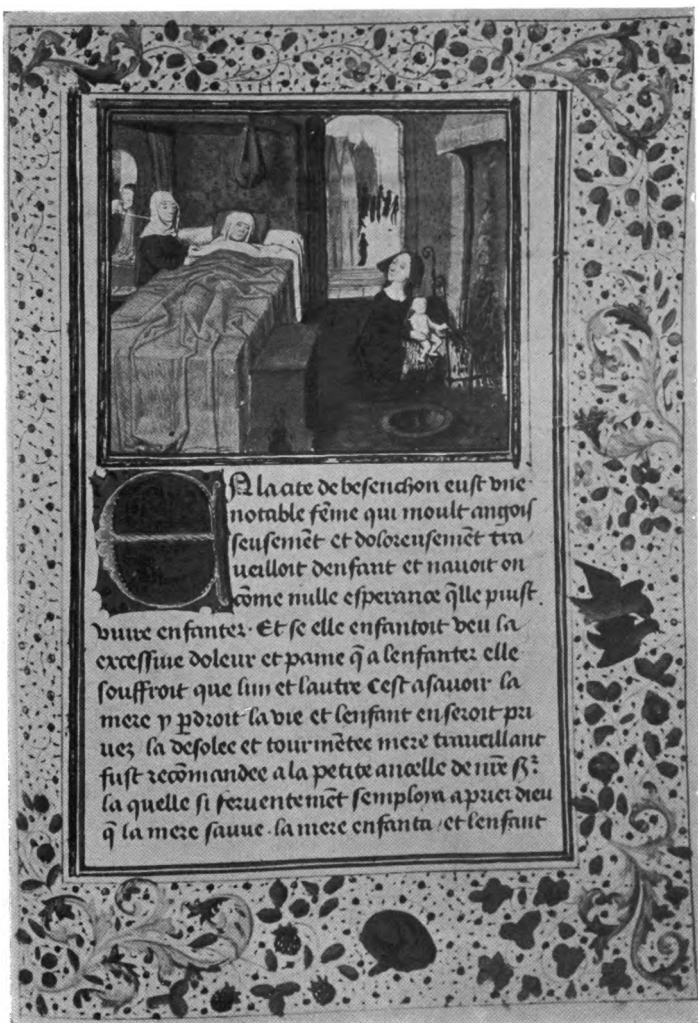 En la cite de besenchon eust vne
notable fēme qui moult angois
seusemēt et doloreusemēt tra
ueilloit denfant et nauoit on
cōme nulle esperance q̄lle puist.
viure enfanter · Et se elle enfantoit veu la
excessiue doleur et paine q̄ a lenfanter elle
souffroit que lun et lautre cest asauoir la
mere y ꝑdroit la vie et lenfant en seroit pri
uez la desolee et tourmētee mere traueillant
fust recōmandee a la petite ancelle de nr̄e sr̄
la quelle si feruentemēt semploya a prier dieu
q̄ la mere sauue · la mere enfanta / et lenfant